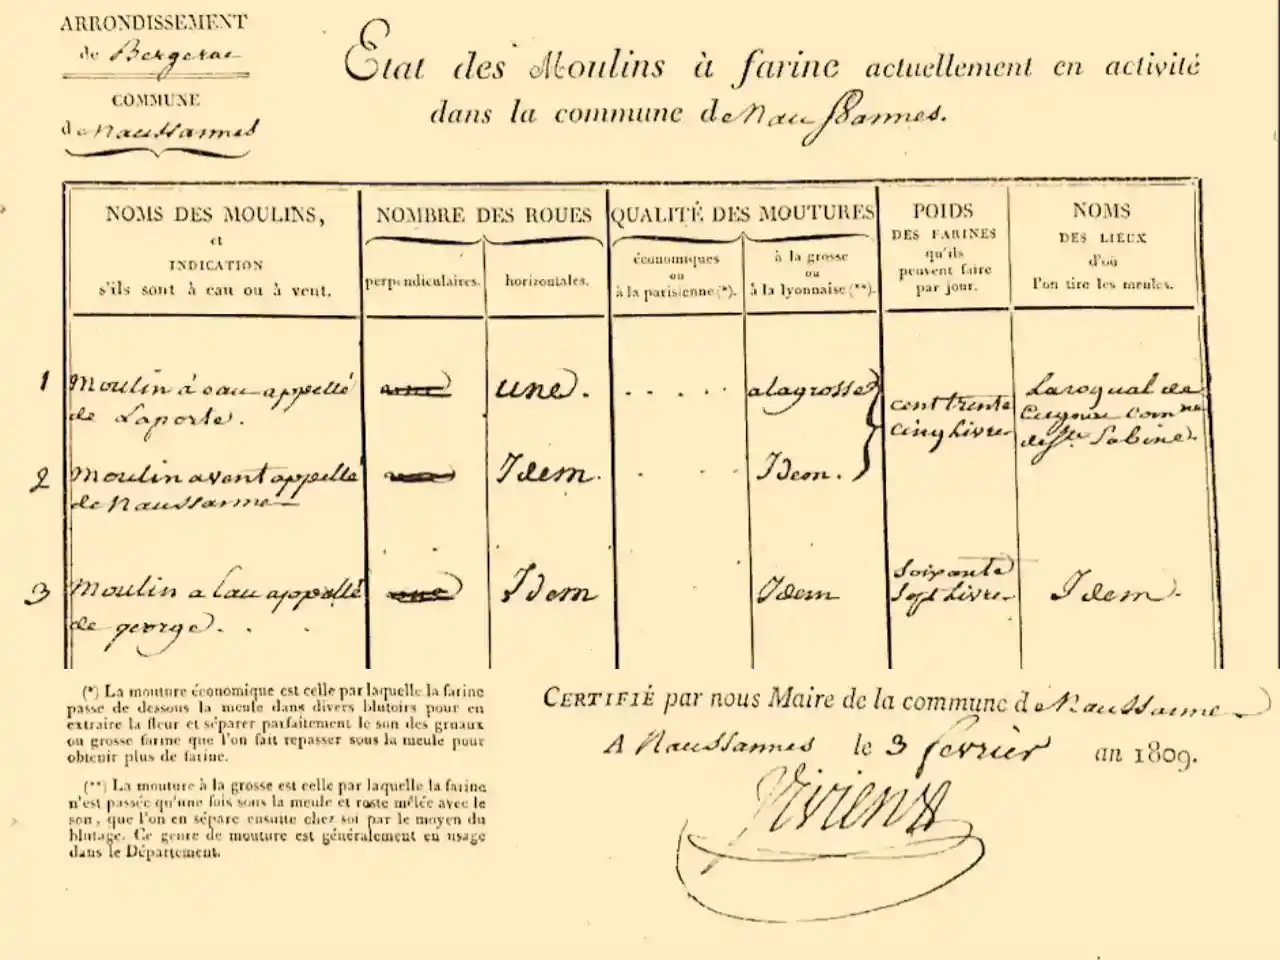 ARRONDISSEMENT
de Bergerac
COMMUNE
de Naussannes
Etat des Moulins à farine actuellement en activité
dans la commune de Naussannes.
NOMS DES MOULINS,
et
INDICATION
s'ils sont à eau ou à vent.
NOMBRE DES ROUES
perpendiculaires.
horizontales.
QUALITÉ DES MOUTURES
économiques
ou
à la parisienne (*).
à la grosse
ou
à la lyonnaise (**).
POIDS
DES FARINES
qu'ils
peuvent faire
par jour.
NOMS
DES LIEUX
d'où
l'on tire les meules.
1 Moulin à eau appellé
de Laporte.
une.
alagrosse
cent trente
cinq Livres
Laroqual de
Com.ne
de Ste Sabine.
2 Moulin a vent appellé
de Naussanne
Idem.
Idem.
3 Moulin a Eau appellé
de george.
Idem
Idem
Soixante
Sept Livres
Idem.
(*) La mouture économique est celle par laquelle la farine
passe de dessous la meule dans divers blutoirs pour en
extraire la fleur et séparer parfaitement le son des gruaux
ou grosse farine que l'on fait repasser sous la meule pour
obtenir plus de farine.
(**) La mouture à la grosse est celle par laquelle la farine
n'est passée qu'une fois sous la meule et reste mêlée avec le
son, que l'on en sépare ensuite chez soi par le moyen du
blutage. Ce genre de mouture est généralement en usage
dans le Département.
CERTIFIÉ par nous Maire de la commune de Naussanne
A Naussannes le 3 fevrier an 1809.
Vivien